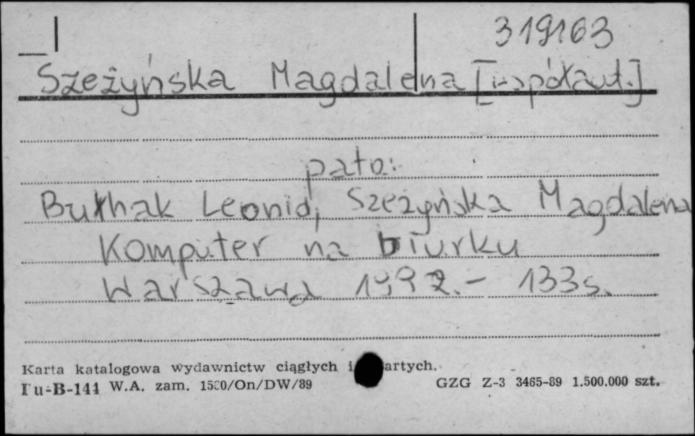 319163
Szeżyńska Magdalena [współaut.]
patrz:
Bułhak Leonid, Szeżyńska Magdalena
Komputer na biurku
Warszawa 1992.- 133s.
Karta katalogowa wydawnictw ciągłych i artych.
Pu-B-144 W.A. zam. 1500/On/DW/89 GZG Z-3 3465-89 1.500.000 szt.